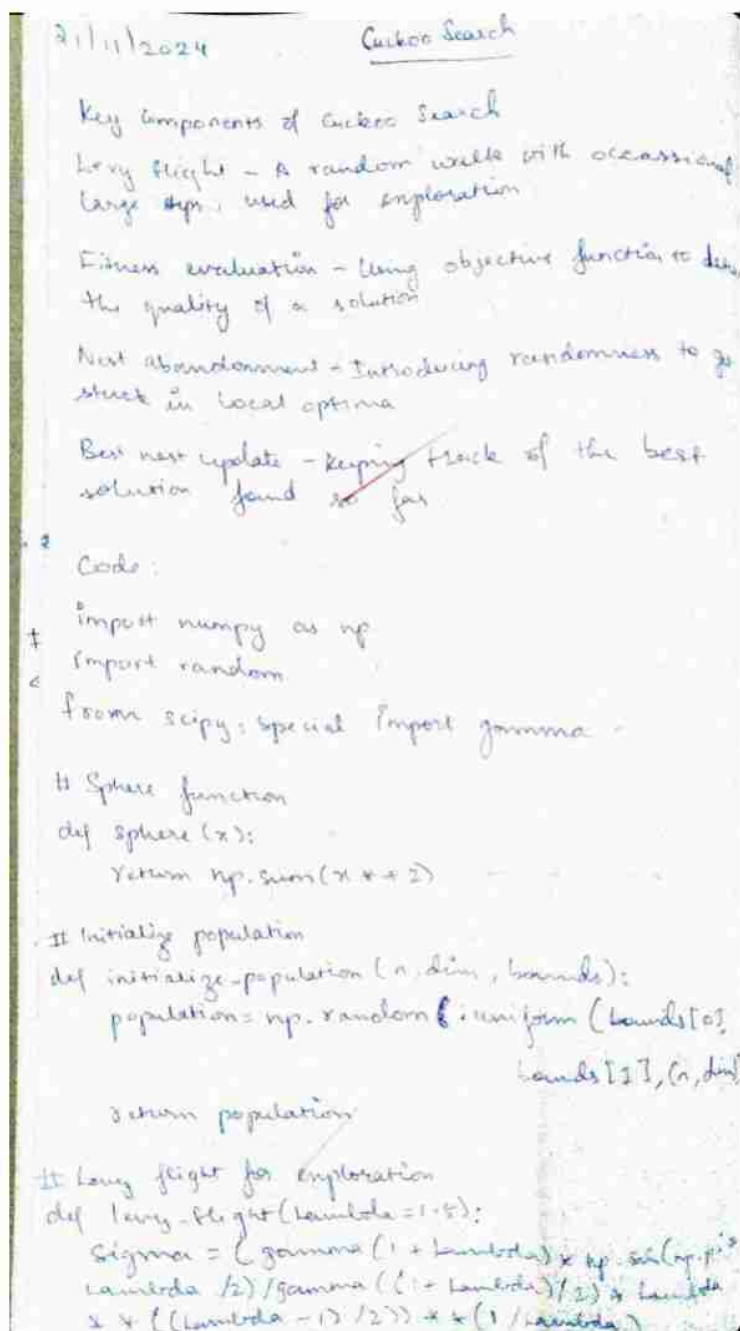 21/11/2024
Cuckoo Search
Key Components of Cuckoo Search
Levy flight - A random walk with occassional
large steps, used for exploration
Fitness evaluation - Using objective function to
the quality of a solution
Nest abandonment - Introducing randomness to
stuck in local optima
Best nest update - Keeping track of the best
solution found so far
Code:
import numpy as np
import random
from scipy.special import gamma
# Sphere function
def sphere(x):
return np.sum(x ** 2)
# Initialize population
def initialize_population(n, dim, bounds):
population = np.random.uniform(bounds[0],
bounds[1], (n, dim)
return population
# Levy flight for exploration
def levy_flight(Lambda=1.5):
sigma = (gamma(1 + Lambda) * np.sin(np.pi *
Lambda /2) / gamma((1 + Lambda)/2) * Lambda
* * ((Lambda - 1) /2)) ** (1 / Lambda)